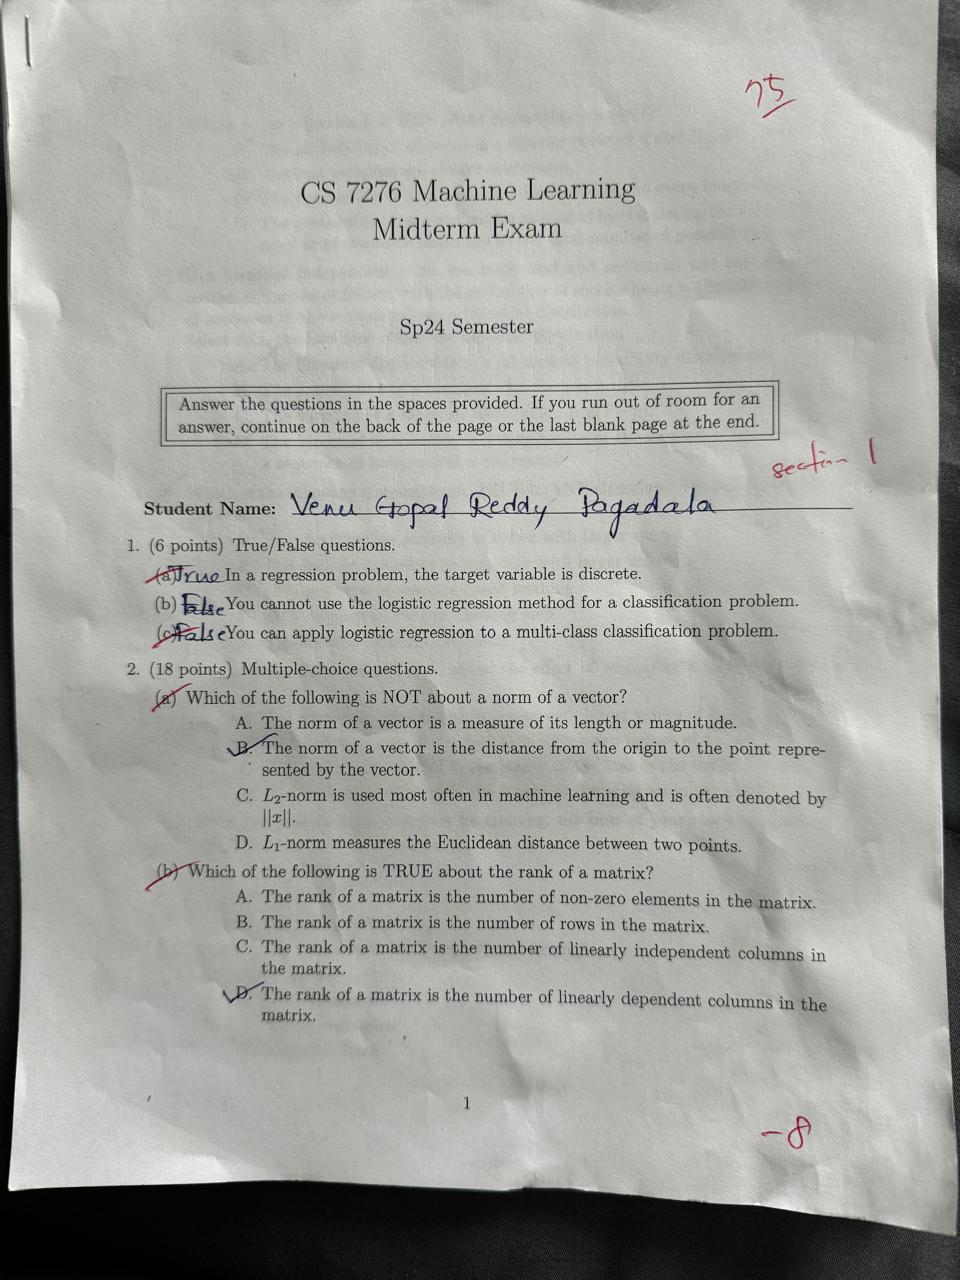 75
CS 7276 Machine Learning
Midterm Exam
Sp24 Semester
Answer the questions in the spaces provided. If you run out of room for an
answer, continue on the back of the page or the last blank page at the end.
section 1
Student Name: Venu Gopal Reddy Pagadala
1. (6 points) True/False questions.
(a) True In a regression problem, the target variable is discrete.
(b) False You cannot use the logistic regression method for a classification problem.
(c) False You can apply logistic regression to a multi-class classification problem.
2. (18 points) Multiple-choice questions.
(a) Which of the following is NOT about a norm of a vector?
A. The norm of a vector is a measure of its length or magnitude.
B. The norm of a vector is the distance from the origin to the point repre-
sented by the vector.
C. L₂-norm is used most often in machine learning and is often denoted by
||x||.
D. L₁-norm measures the Euclidean distance between two points.
(b) Which of the following is TRUE about the rank of a matrix?
A. The rank of a matrix is the number of non-zero elements in the matrix.
B. The rank of a matrix is the number of rows in the matrix.
C. The rank of a matrix is the number of linearly independent columns in
the matrix.
D. The rank of a matrix is the number of linearly dependent columns in the
matrix.
1
-8